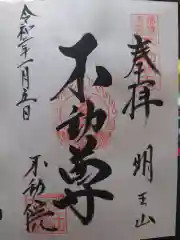 奉拝
明王山
不動尊
不動院
令和二年一月五日